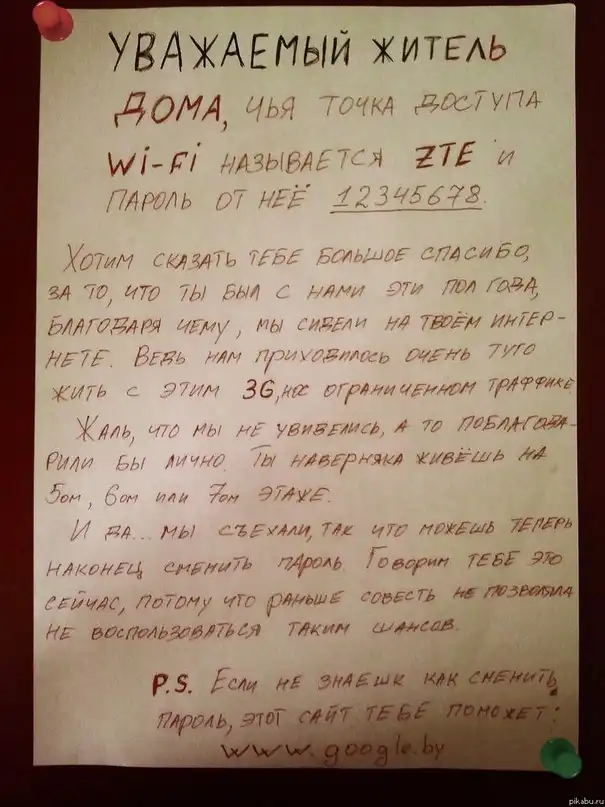 УВАЖАЕМЫЙ ЖИТЕЛЬ
ДОМА, ЧЬЯ ТОЧКА ДОСТУПА
Wi-Fi НАЗЫВАЕТСЯ ZTE и
ПАРОЛЬ ОТ НЕЁ 12345678.
ХОТИМ СКАЗАТЬ ТЕБЕ БОЛЬШОЕ СПАСИБО,
ЗА ТО, ЧТО ТЫ БЫЛ С НАМИ ЭТИ ПОЛ ГОДА,
БЛАГОДАРЯ ЧЕМУ, МЫ СИДЕЛИ НА ТВОЁМ ИНТЕР-
НЕТЕ. ВЕДЬ НАМ ПРИХОДИЛОСЬ ОЧЕНЬ ТУГО
ЖИТЬ С ЭТИМ 3G, ОГРАНИЧЕННОМ ТРАФФИКЕ
ЖАЛЬ, ЧТО МЫ НЕ УВИДЕЛИСЬ, А ТО ПОБЛАГОДА-
РИЛИ БЫ ЛИЧНО. ТЫ НАВЕРНЯКА ЖИВЁШЬ НА
5ом, 6ом или 7ом ЭТАЖЕ.
И ДА... МЫ СЪЕХАЛИ, ТАК ЧТО МОЖЕШЬ ТЕПЕРЬ
НАКОНЕЦ СМЕНИТЬ ПАРОЛЬ. ГОВОРИМ ТЕБЕ ЭТО
СЕЙЧАС, ПОТОМУ ЧТО РАНЬШЕ СОВЕСТЬ НЕ ПОЗВОЛЯЛА
НЕ ВОСПОЛЬЗОВАТЬСЯ ТАКИМ ШАНСОВ.
P.S. ЕСЛИ НЕ ЗНАЕШК КАК СМЕНИТЬ
ПАРОЛЬ, ЭТОТ САЙТ ТЕБЕ ПОМОЖЕТ:
www.google.by
pikabu.ru